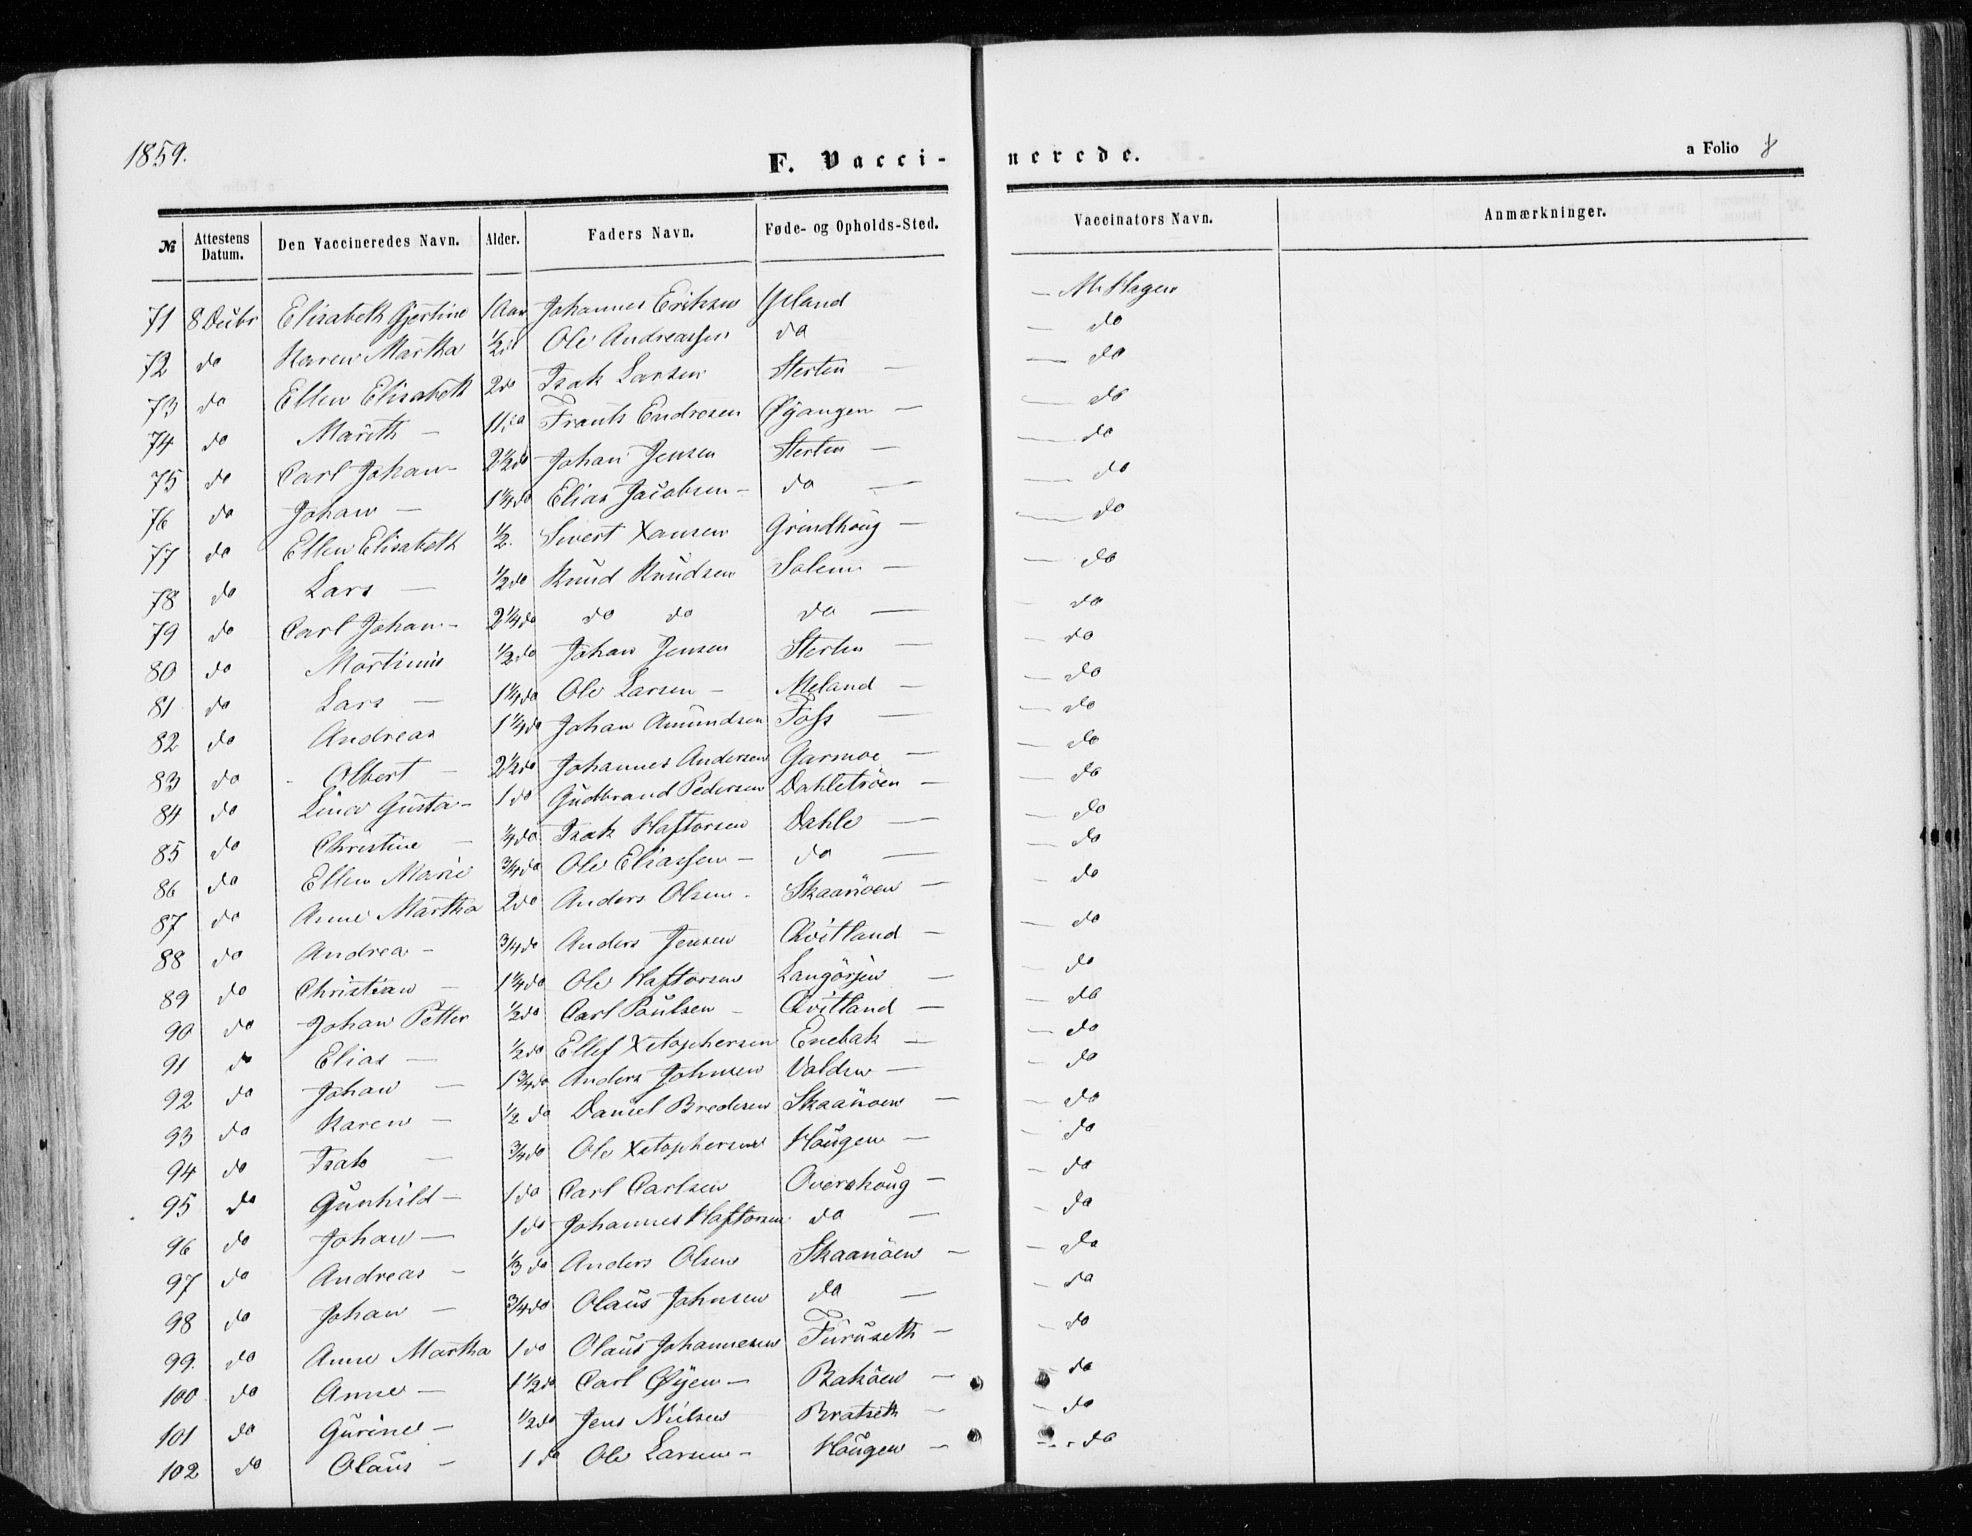 1859.
F. Vacci- nerede.
a Folio 8
№ Attestens Datum. Den Vaccineredes Navn. Alder. Faders Navn. Føde- og Opholds-Sted. Vaccinators Navn. Anmærkninger.
71 8 Decbr Elisabeth Gjertine 1 Aar Johannes Eriksen — M. Hagen
72 do Karen Martha 1/2 do Ole Andreassen do — do
73 do Ellen Elisabeth 2 do Isak Larsen Sterten — — do
74 do Mareth — Frants Endresen Øyangen — — do
75 do Carl Johan — 2 1/2 do Johan Jensen Sterten — — do
76 do Johan — 1 1/4 do Elias Jacobsen — do — — do
77 do Ellen Elisabeth 1/2. Sivert Xansen Grindhoug — — do
78 do Lars — 1/2 do Knud Knudsen Solem — — do
79 do Carl Johan — 2 1/4 do do do do — — do
80 do Martinus 1/2 do Johan Jensen Sterten — — do
81 do Lars — 1 1/4 do Ole Larsen — Meland — — do
82 do Andreas 1 1/4 do Johan Amundsen Foss — — do
83 do Olbert — 2 1/2 do Johannes Andersen Garmoe — — do
84 do Lina Gusta — 1 do Gudbrand Pedersen Dahletrøen — — do
85 do Christine — 1/4 do Isak Haftorsen Dahle — — do
86 do Ellen Marie 3/4 do Ole Eliassen — do — — do
87 do Anne Martha 2 do Anders Olsen — Skaanøen — — do
88 do Andrea — 3/4 do Anders Jensen Qvitland — — do
89 do Christian — 1 1/4 do Ole Haftorsen Langörjen — — do
90 do Johan Petter 1/2 do Carl Paulsen — Qvitland — — do
91 do Elias — 1/2 do Ellef Xstophersen Enebak — — do
92 do Johan — 1 3/4 do Anders Johnsen Valden — — do
93 do Karen — 1/2 do Daniel Bredesen Skaanøen — — do
94 do Isak — 3/4 do Ole Xstophersen Haugen — — do
95 do Gunhild — 1 do Carl Carlsen Overskoug — — do
96 do Johan — 1 do Johannes Haftorsen do — — do
97 do Andreas — 1/3 do Anders Olsen Skaanøen — — do
98 do Johan — 3/4 do Olaus Johnsen do — — do
99. do Anne Martha 1 do Olaus Johannesen Furuseth — — do
100 do Anne — 1 1/2 do Carl Øyen — Bakøen — — do
101 do Gurine — 1/2 do Jens Nielsen Bratseth — — do
102 do Olaus — 1 do Ole Larsen — Haugen — — do